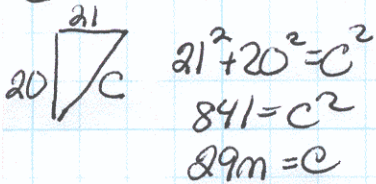 21
20 C
21²+20²=C²
841=C²
29m=C